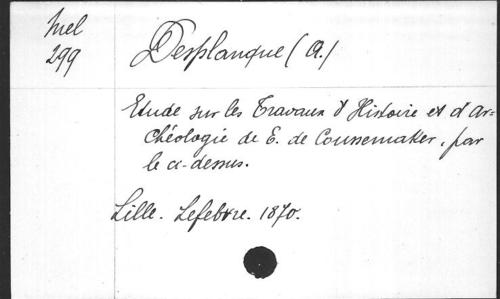 Mel
299
Desplanque (A.)
Etude sur les Travaux d'Histoire et d'Ar=
chéologie de E. de Coussemaker, par
le ci-dessus.
Lille. Lefebvre. 1870.